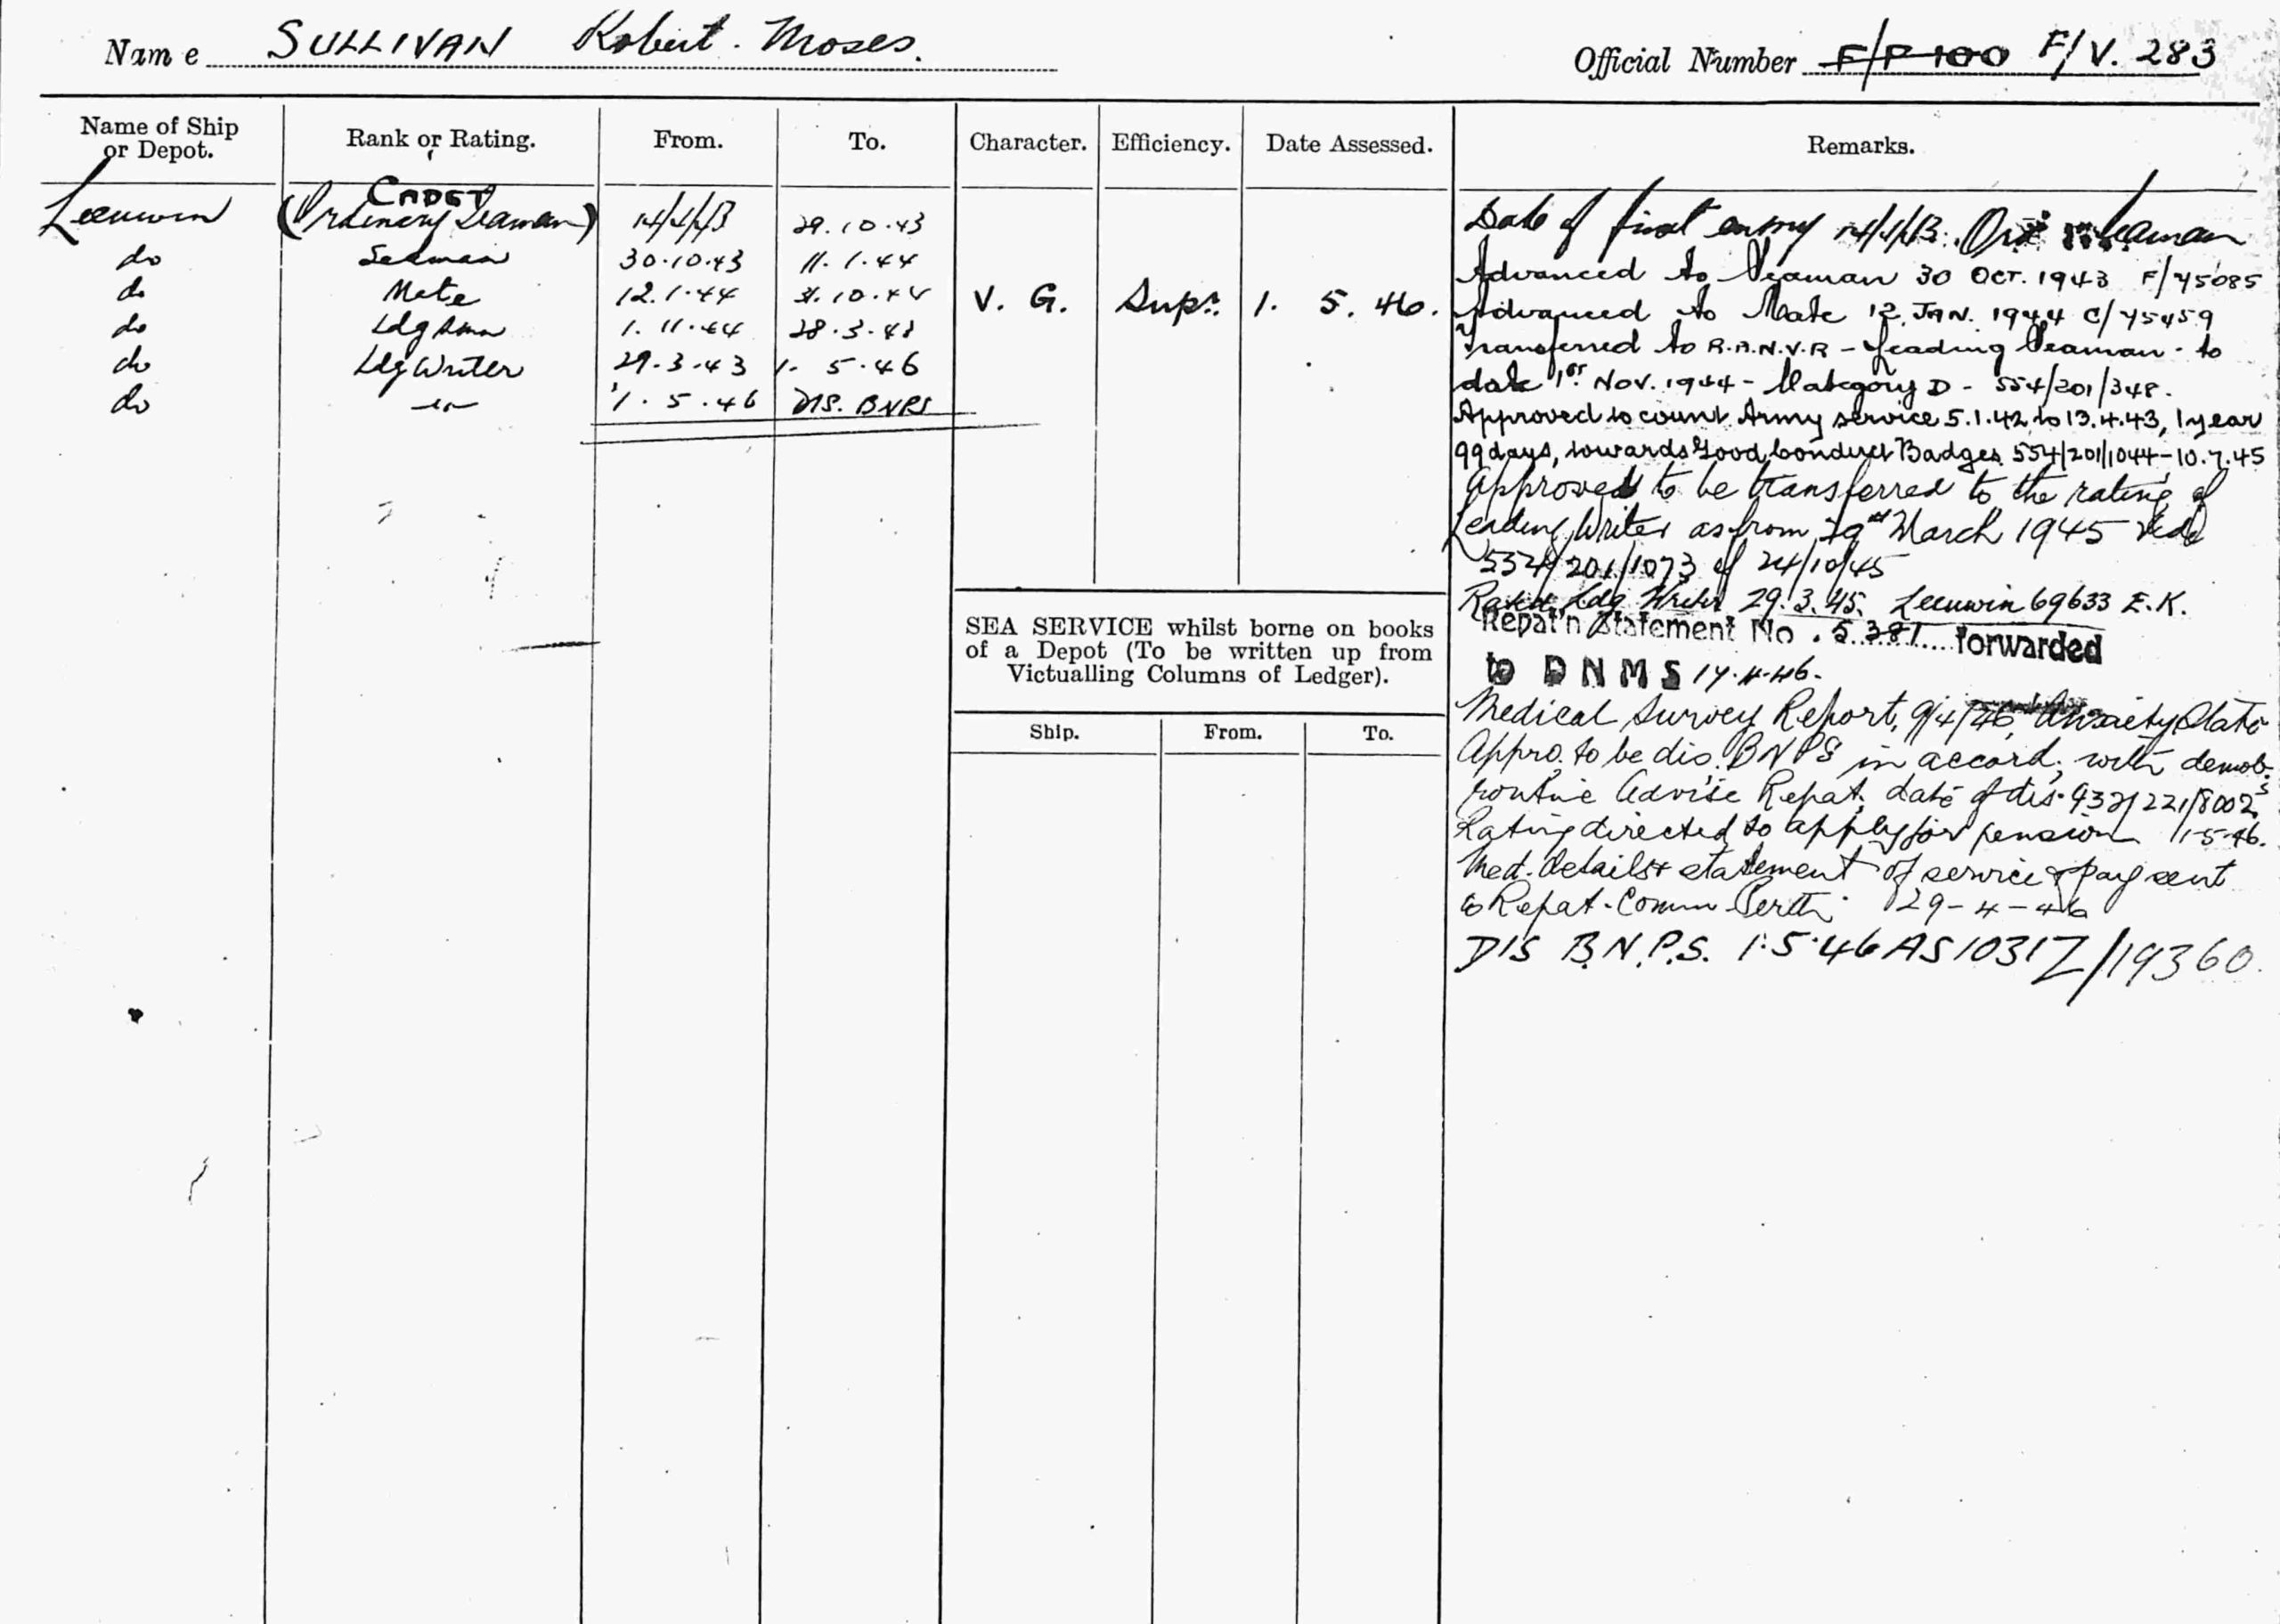 Name SULLIVAN Robert. Moses.
Official Number F/P 100 F/V. 283
Name of Ship or Depot. Rank or Rating. From. To. Character. Efficiency. Date Assessed. Remarks.
CADET
Leeuwin (Ordinary Seaman) 29.10.43
do Seaman 30.10.43 11.1.44
do Mate 12.1.44 31.10.44 V. G. Supr. 1. 5. 46.
do Ldg Smn 1.11.44
do Ldg Writer 1. 5.46
do 1.5.46 DIS. BNPS
Date of first entry Seaman
Advanced to Seaman 30 OCT. 1943 F/75085
Advanced to Mate 12. JAN. 1944 C/75459
Transferred to R.A.N.V.R - Leading Seaman - to
date 1st NOV. 1944 - Category D - 554/201/348.
Approved to count Army service 5.1.42 to 13.4.43, 1 year
99 days, towards Good Conduct Badges 554/201/1044-10.7.45
Approved to be transferred to the rating of
Leading Writer as from 29th March 1945 Vide
554/201/1073 of 24/10/45
Rated Ldg Writer 29.3.45. Leeuwin 69633 E.K.
Repat'n Statement No. 5381 forwarded
to DNMS 17.4.46.
Medical Survey Report, 9/4/46, Anxiety State
Appro. to be dis. BNPS in accord. with demob.
routine Advise Repat. date of dis. 432/221/8002
Rating directed to apply for pension 1-5-46.
Med. details & statement of service & pay sent
to Repat. Comm Perth. 29-4-46
DIS B.N.P.S. 1.5.46 AS 1031Z/19360.
SEA SERVICE whilst borne on books
of a Depot (To be written up from
Victualling Columns of Ledger).
Ship. From. To.